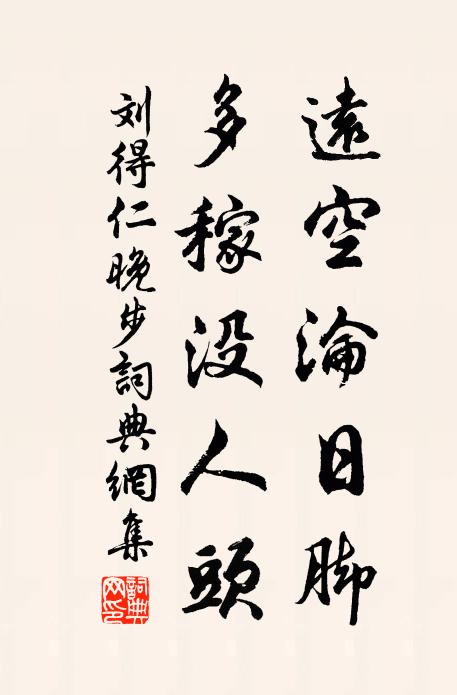 遠空淪日脚
多稼没人頭
刘得仁晚步詞典網集
詞典網印